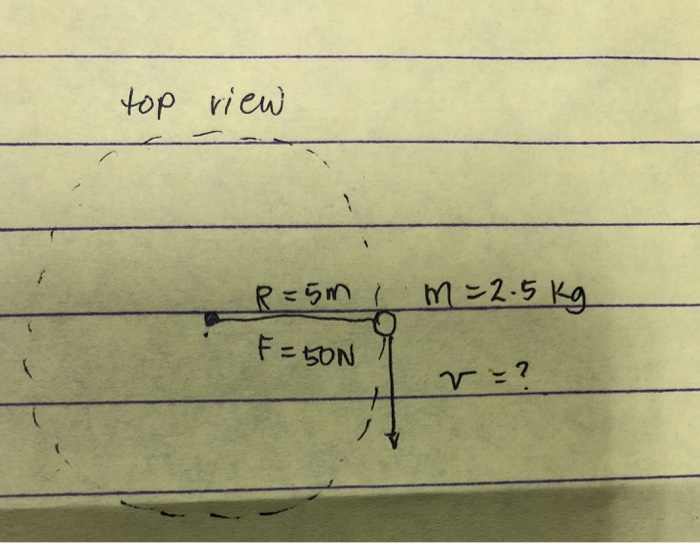 top view
R = 5m
m = 2.5 kg
F = 50N
v = ?